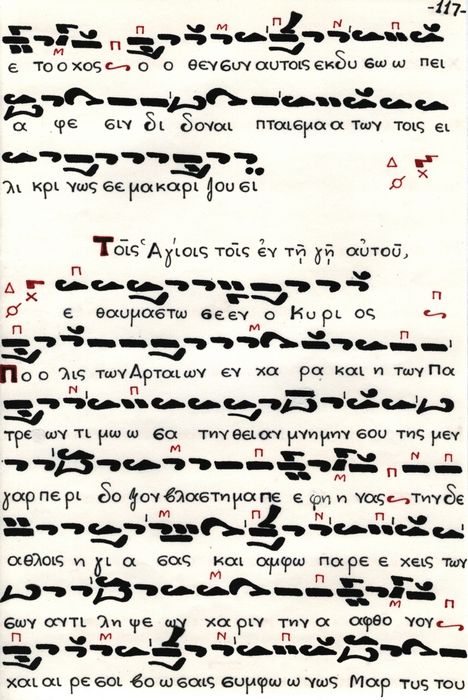 -117-
ε το ο χος ο ο θεν συν αυτοις εκδυ σω ω πει
α φε σιν δι δοναι πταισμα α των τοις ει
λι κρι νως σε μακαρι ζου σι
Τοῖς Ἁγίοις τοῖς ἐν τῇ γῇ αὐτοῦ,
ε θαυμαστω σε εν ο Κυρι ος
Πο ο λις των Αρταιων εν χα ρα και η των Πα
τρε ων τι μω ω σα την θειαν μνημην σου της μεν
γαρ περι δο ξον βλαστημα πε ε φη η νας την δε
αθλοις η γι α σας και αμφω παρε ε χεις των
σων αντι λη ψε ων χαριν την α αφθο νον
χαι αι ρε σοι βο ω σαις συμφω ω νως Μαρ τυς του